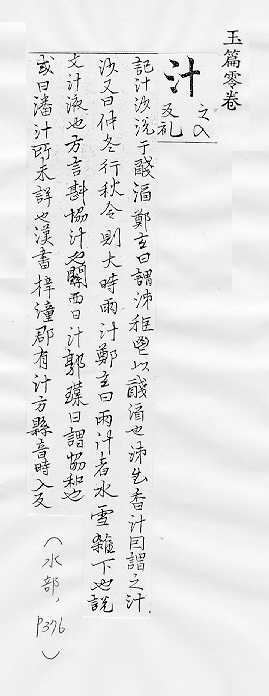 玉篇零卷
汁
之入
反礼
記汁涗于醆酒鄭玄曰謂沛秬鬯以醆酒也沛煮香汁曰謂之汁
沙又曰仲冬行秋令則大時雨汁鄭玄曰雨汁者水雪雜下也說
文汁液也方言斟協汁也關西曰汁郭璞曰謂協和也
或曰潘汁所未詳也漢書梓潼郡有汁方縣音時入反
(水部, p376)